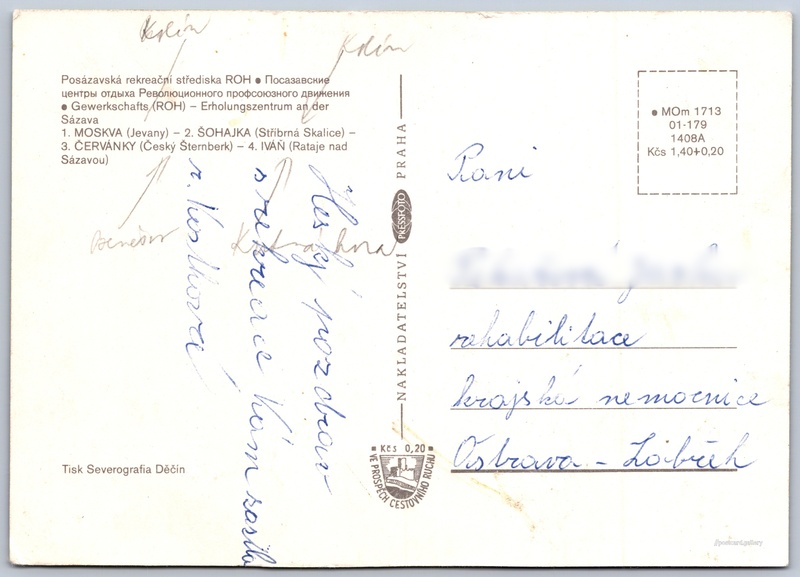 Kolín
Kolín
Posázavská rekreační střediska ROH ● Посазавские
центры отдыха Революционного профсоюзного движения
● Gewerkschafts (ROH) – Erholungszentrum an der
Sázava
1. MOSKVA (Jevany) – 2. ŠOHAJKA (Stříbrná Skalice) –
3. ČERVÁNKY (Český Šternberk) – 4. IVÁŇ (Rataje nad
Sázavou)
Benešov
Kutná hora
Hezký pozdrav
s rekreace Vám zasílá
r.
Tisk Severografia Děčín
NAKLADATELSTVÍ PRESSFOTO PRAHA
Kčs 0,20
VE PROSPĚCH CESTOVNÍHO RUCHU
● MOm 1713
01-179
1408A
Kčs 1,40+0,20
Paní
rehabilitace
krajská nemocnice
Ostrava – Zábřeh
postcard.gallery